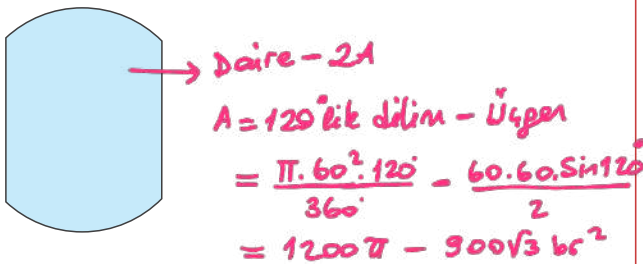 Daire - 2A
A = 120° lik dilim - Üçgen
= π.60².120° / 360° - 60.60.Sin120° / 2
= 1200π - 900√3 br²